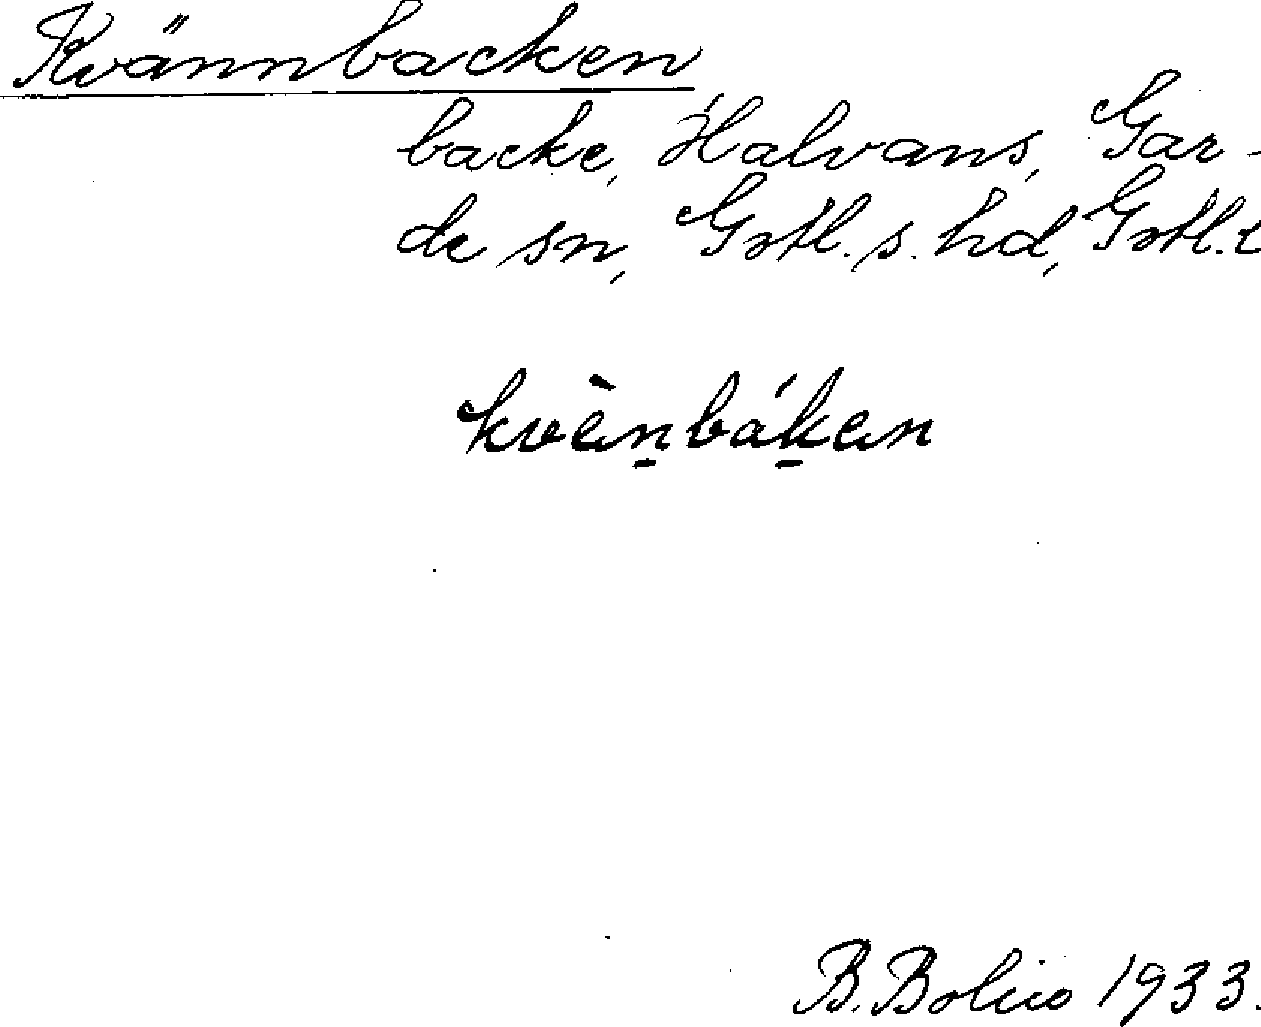 Kvännbacken
backe, Halvans, Gar-
de sn, Gotl. s. hd, Gotl. l
kvæ̀n̠bák̠en
B. Bolin 1933.